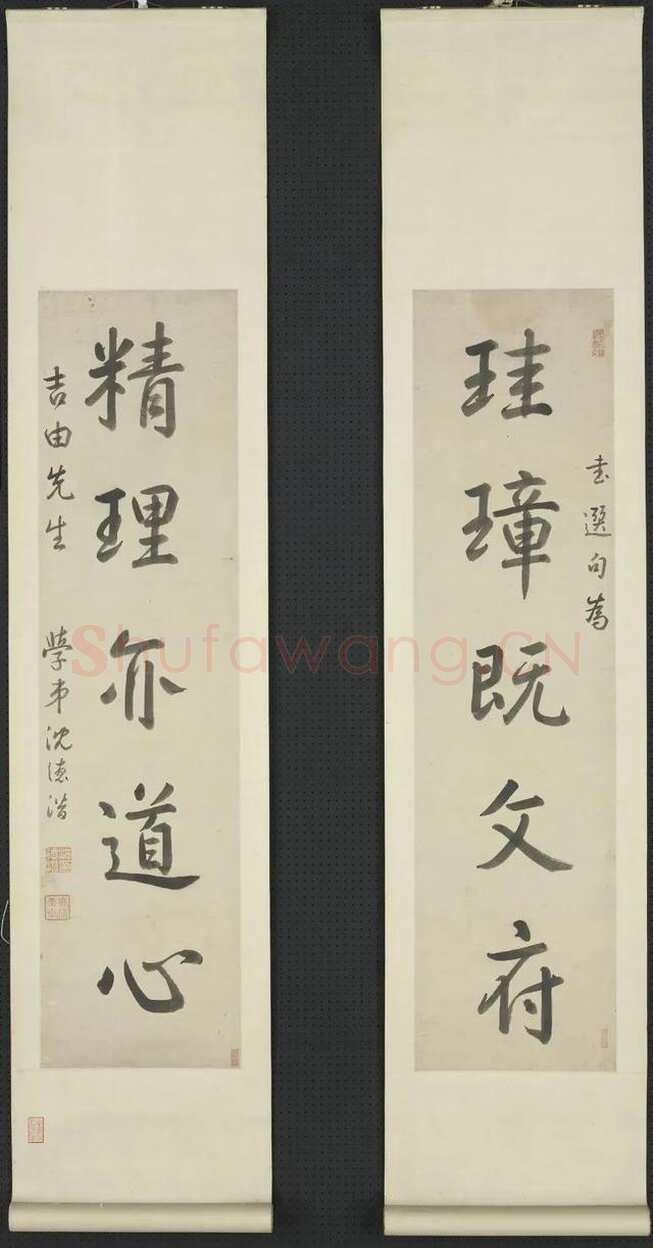 書選句為
珪璋既文府
精理亦道心
吉由先生
學弟沈德潛
Shufawang.CN